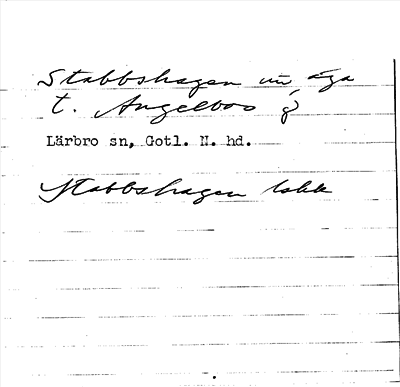 Stabbshagen äga
t. Angelbos
Lärbro sn, Gotl. N. hd.
Stabbshagen lokk